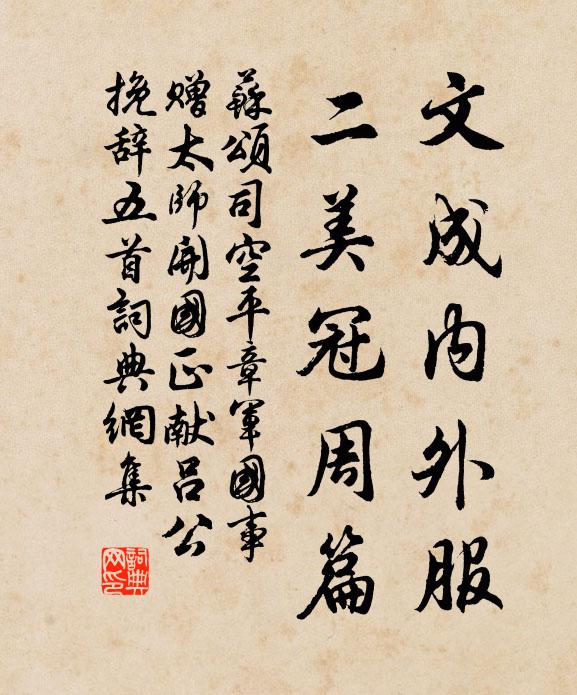 文成内外服
二美冠周篇
蘇頌司空平章軍國事
贈太師開國正献呂公
挽辞五首詞典網集
詞典
网印